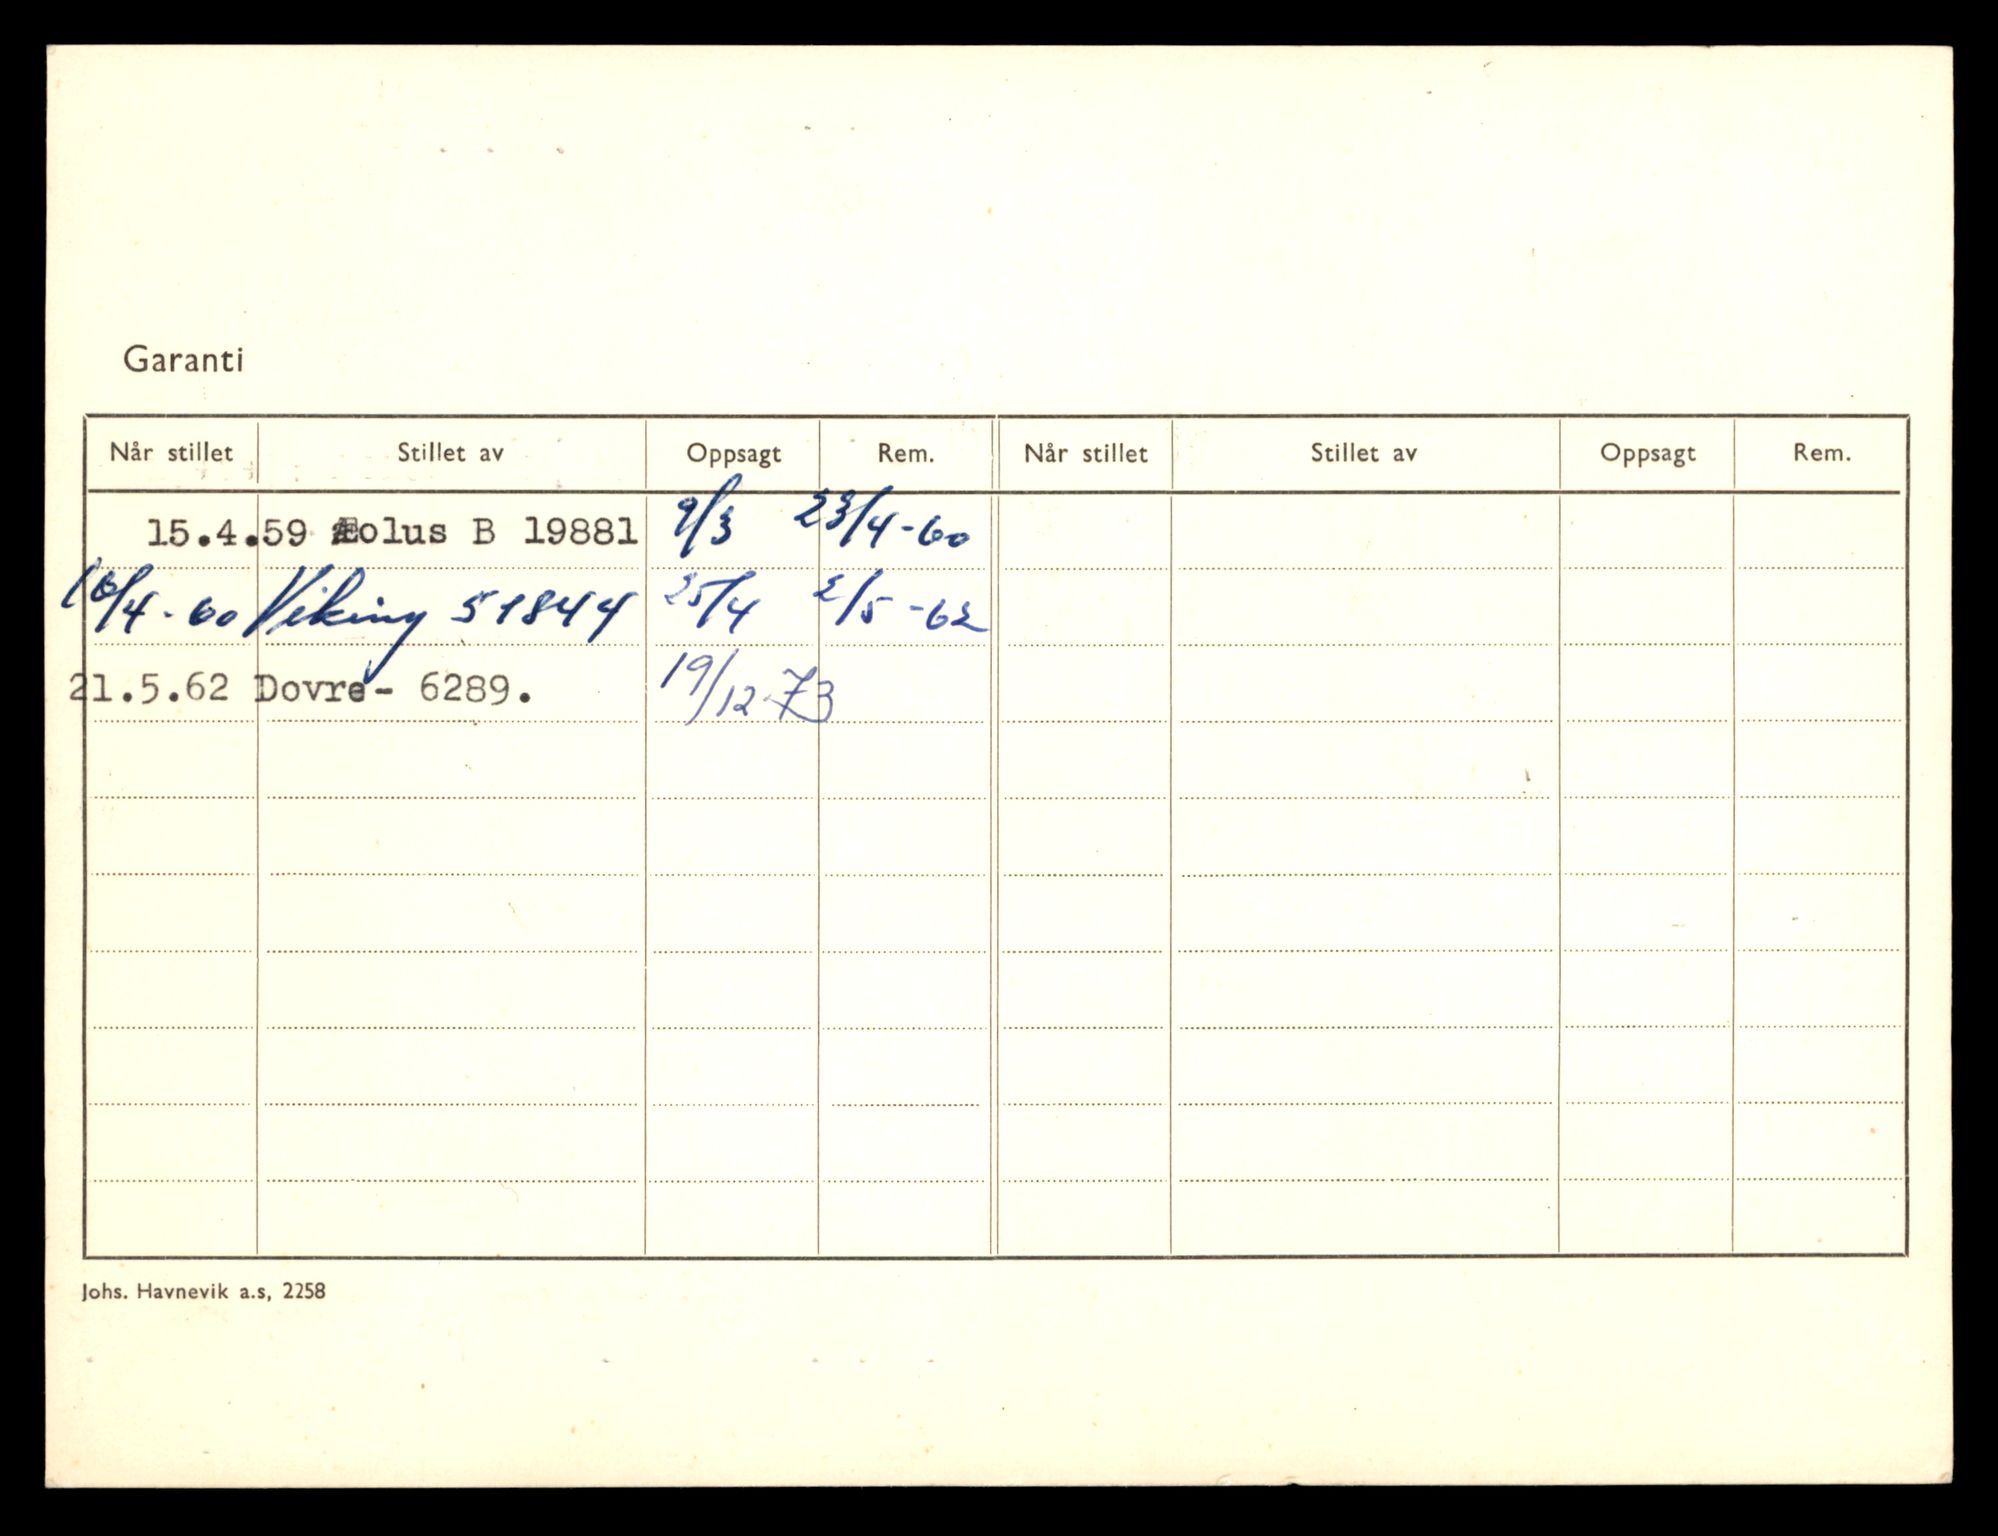 Garanti
Når stillet Stillet av Oppsagt Rem. Når stillet Stillet av Oppsagt Rem.
15.4.59 Æolus B 19881 9/3 23/4-60
/4-60 Viking 51844 25/4 2/5-62
21.5.62 Dovre - 6289. 19/12-73
Johs. Havnevik a.s, 2258